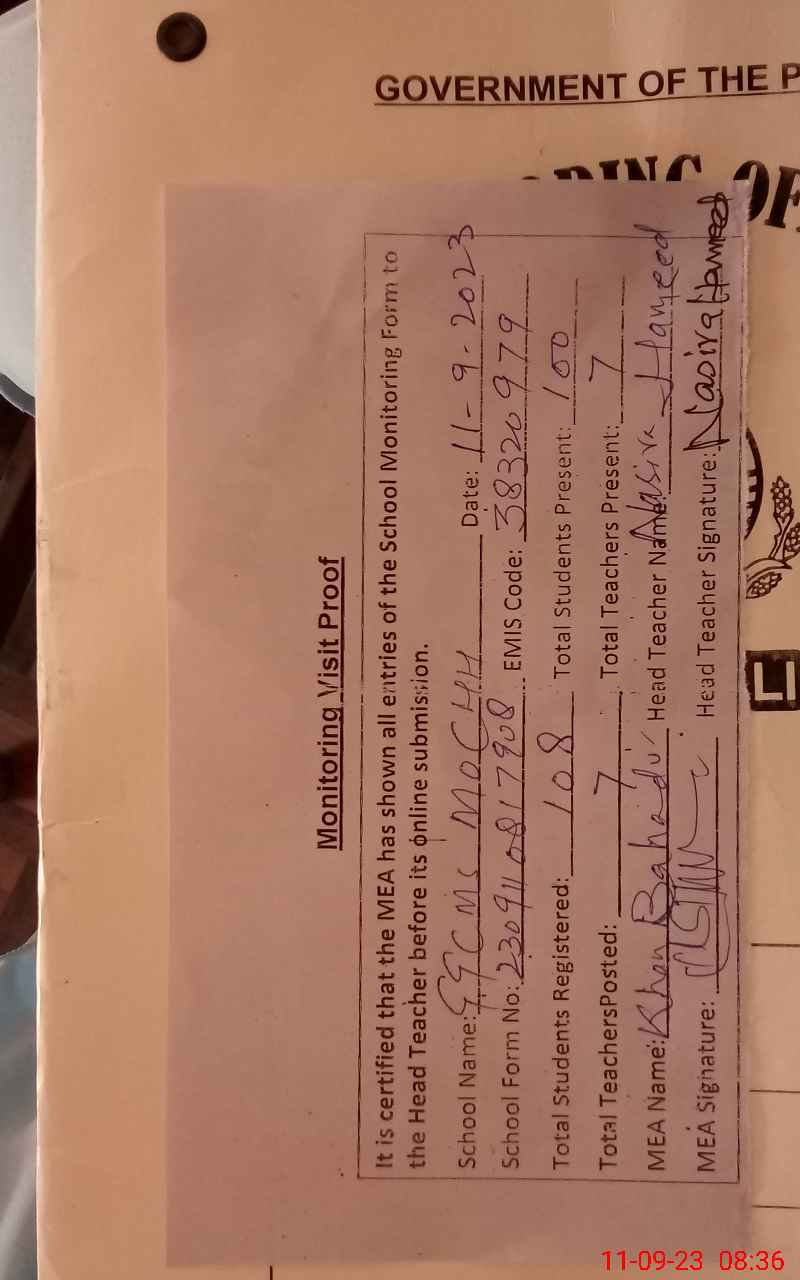 GOVERNMENT OF THE P
Monitoring Visit Proof
It is certified that the MEA has shown all entries of the School Monitoring Form to
the Head Teacher before its online submission.
School Name: GGCMS MOCHH Date: 11-9-2023
School Form No: 2309110817908 EMIS Code: 38320979
Total Students Registered: 108 Total Students Present: 100
Total TeachersPosted: 7 Total Teachers Present: 7
MEA Name: Khan Bahadur Head Teacher Name: Nasira Hameed
MEA Signature: Head Teacher Signature: Nasira Hameed
11-09-23 08:36